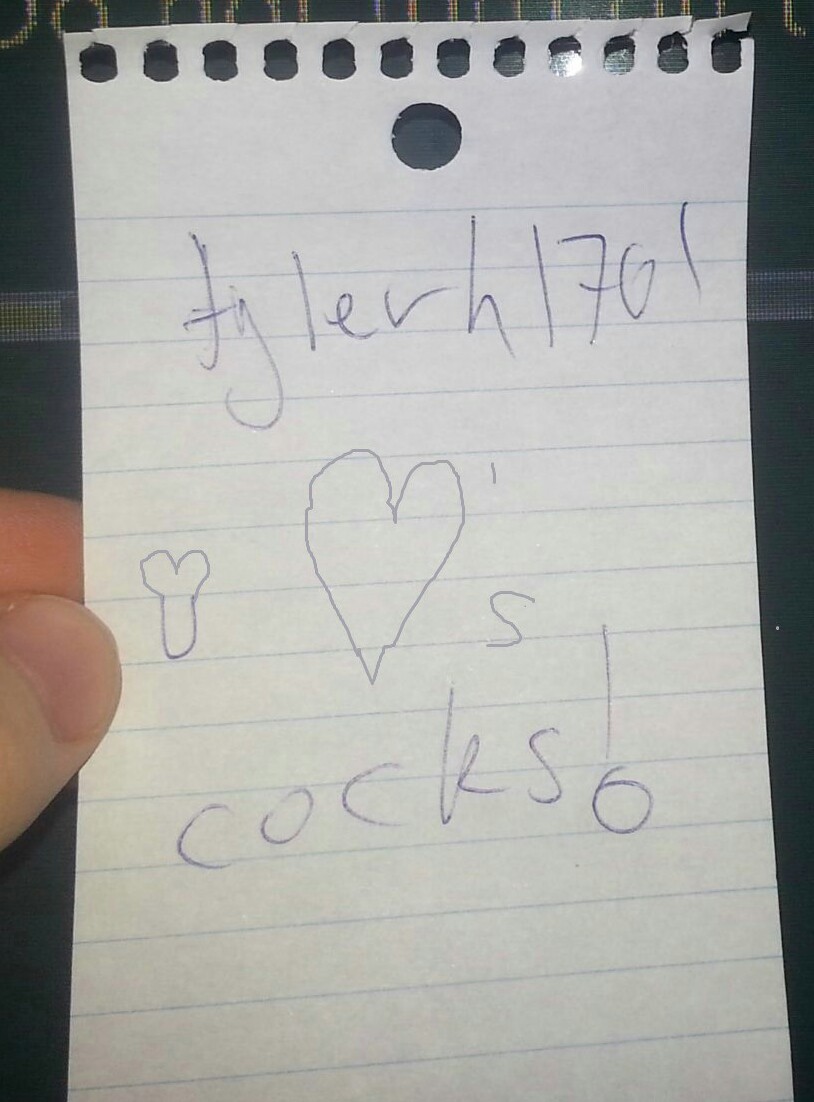 tylerh1701
's
cocks!